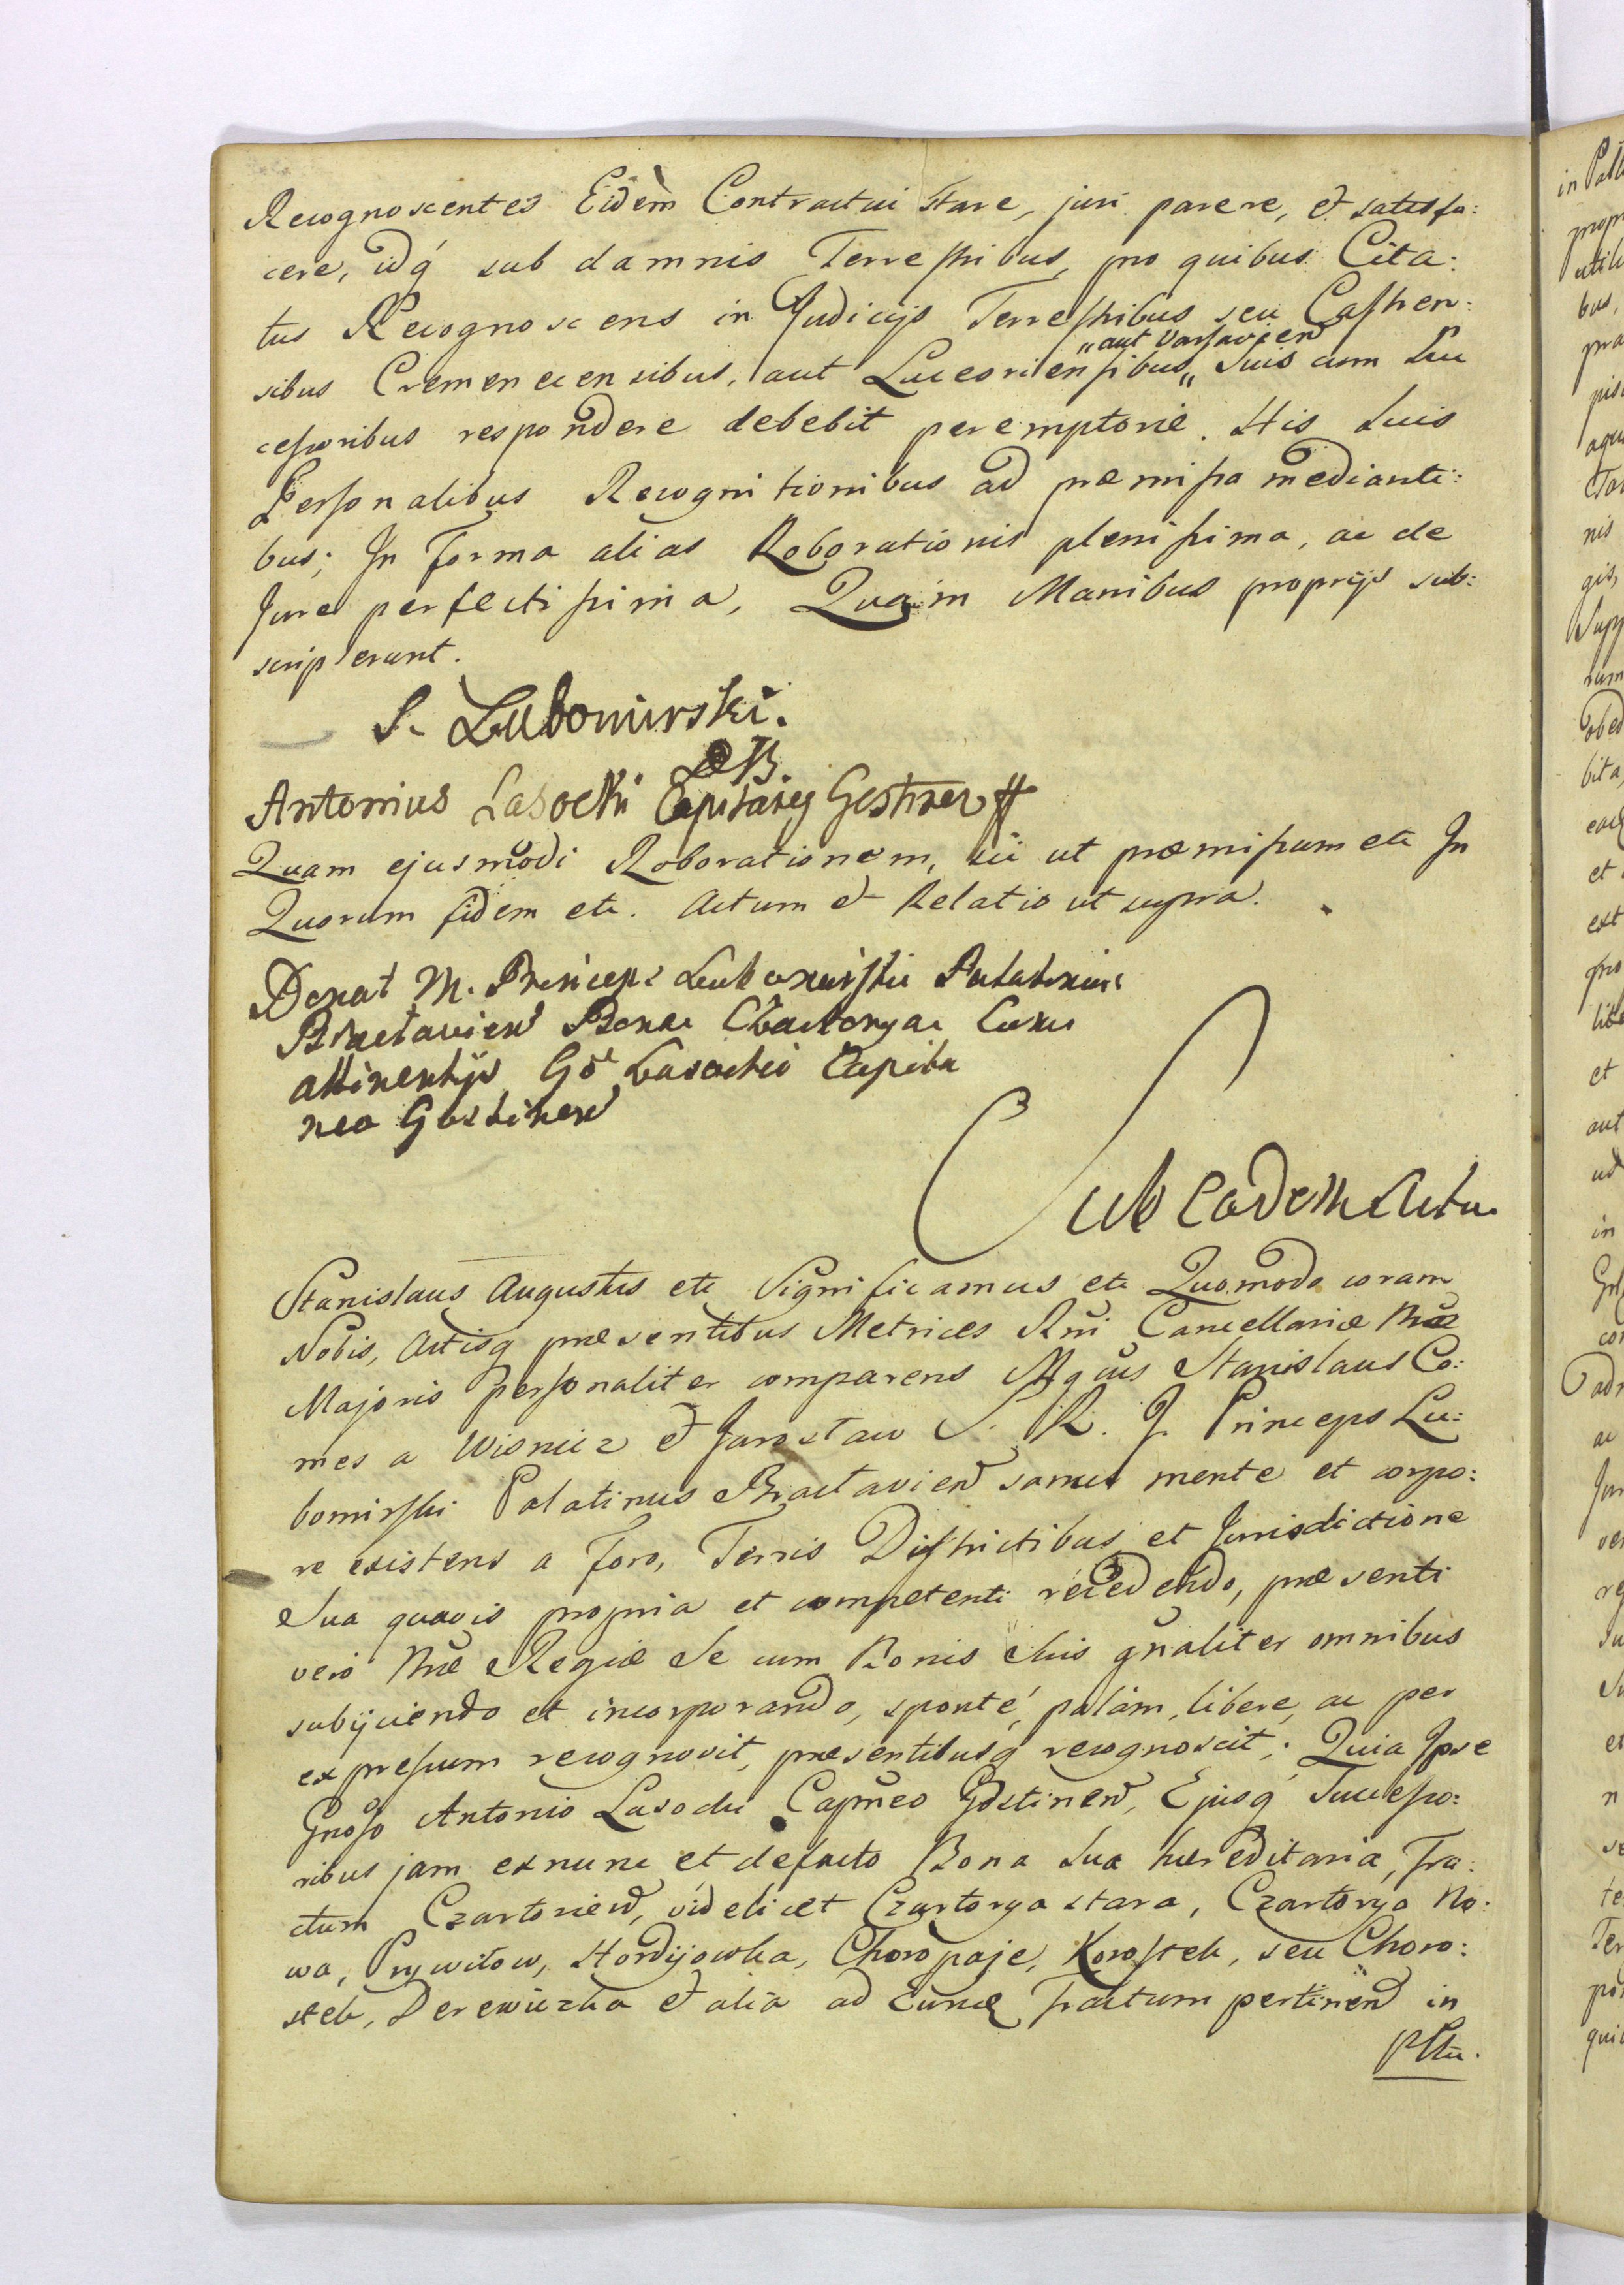 Recognoscentes Eidem Contractui stare, juri parere, et satisfa:
cere, idq́ sub damnis Terrestribus, pro quibus Cita:
tus Recognoscens in Judicijs Terrestribus seu Castren:
„aut Varsavien
sibus Cremenecensibus, aut Luceoriensibus„ suis cum Suc
cessoribus respondere debebit peremptorié. His suis
Personalibus Recognitionibus ad præmissa medianti:
bus; In Forma alias Roborationis plenissima, ac de
Jure perfectissima, Quam Manibus proprijs sub:
scripserunt.
S. Lubomirski.
Antonius Lasocki Capitaneg Gostinen
Quam ejusmodi Roborationem, sic ut præmissum etc In
Quorum fidem etc. Actum et Relatio ut supra.
Donat M. Princeps Lubomirski Palatinus
Braclavien Bona Czartorya cum
attinentijs Gō Lasocki Capita
neo Gostinen
Sub Eadem Actu
Stanislaus Augustus etc Significamus etc Quomodo coram
Nobis, Actisq præsentibus Metrices Rni Cancellariæ Nrae
Majoris personaliter comparens Mgcus Stanislaus Co:
mes a Wisnicz et Jaroslaw S. R. J. Princeps Lu:
bomirski Palatinus Braclavien sanus mente et corpo:
re existens a Foro, Terris Districtibus et Jurisdictione
Sua quavis propria et competenti recedendo, præsenti
vero Nræ Regiæ Se cum Bonis Suis gnaliter omnibus
subijciendo et incorporando, sponté, palám, libere, ac per
expressum recognovit, præsentibusq́ recognoscit; Quia Ipse
Gnoso Antonio Lasocki Capneo Gostinen, Ejusq́ Successo:
ribus jam exnunc et defacto Bona Sua hæreditaria, Tra:
ctum Czartorien, videlicet Czartorya stara, Czartorya No:
wa, Prywitow, Hordijowka, Choropaje, Korostek, seu Choro:
stek, Derewiczka et alia ad Eunđ Tractum pertinen in
Pttu.